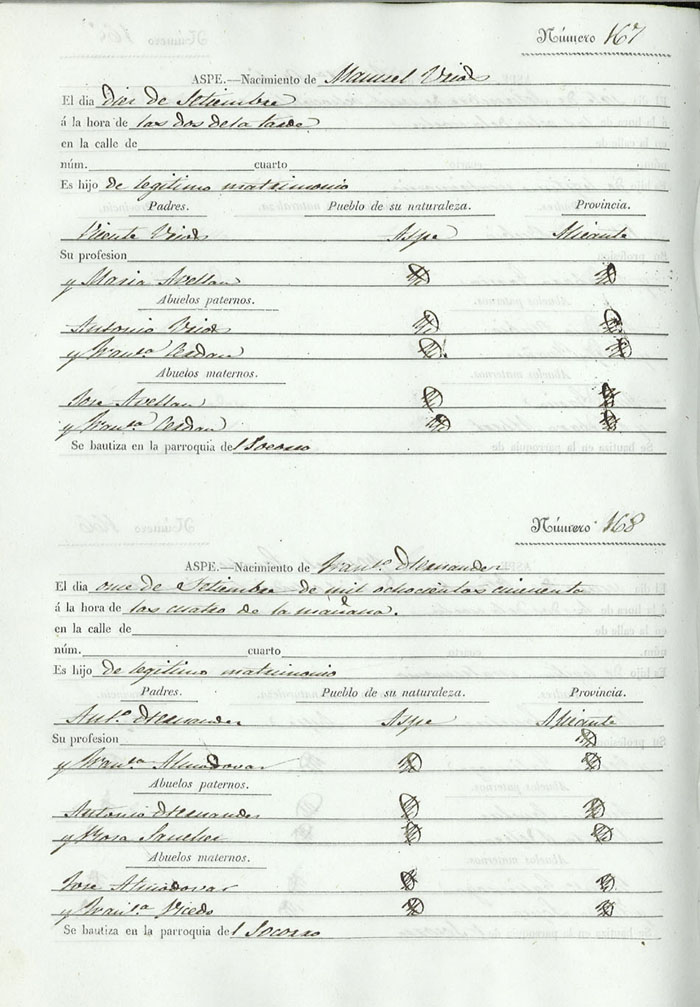 Número 167
ASPE.—Nacimiento de Manuel
El dia diez de Setiembre
á la hora de las dos de la tarde
en la calle de
núm. cuarto
Es hijo de legitimo matrimonio
Padres. Pueblo de su naturaleza. Provincia.
Vicente Aspe Alicante
Su profesion
y Maria Avellan
Abuelos paternos.
Antonio
y Fran.ca Cerdan
Abuelos maternos.
Jose Avellan
y Fran.ca Cerdan
Se bautiza en la parroquia del Socorro
Número 168
ASPE.—Nacimiento de Fran.co Hernandez
El dia once de Setiembre de mil ochocientos cincuenta
á la hora de las cuatro de la mañana.
en la calle de
núm. cuarto
Es hijo de legitimo matrimonio
Padres. Pueblo de su naturaleza. Provincia.
Ant.o Hernandez Aspe Alicante
Su profesion
y Fran.ca Almodovar
Abuelos paternos.
Antonio Hernandez
y Rosa Sanchez
Abuelos maternos.
Jose Almodovar
y Fran.ca Vicedo
Se bautiza en la parroquia del Socorro